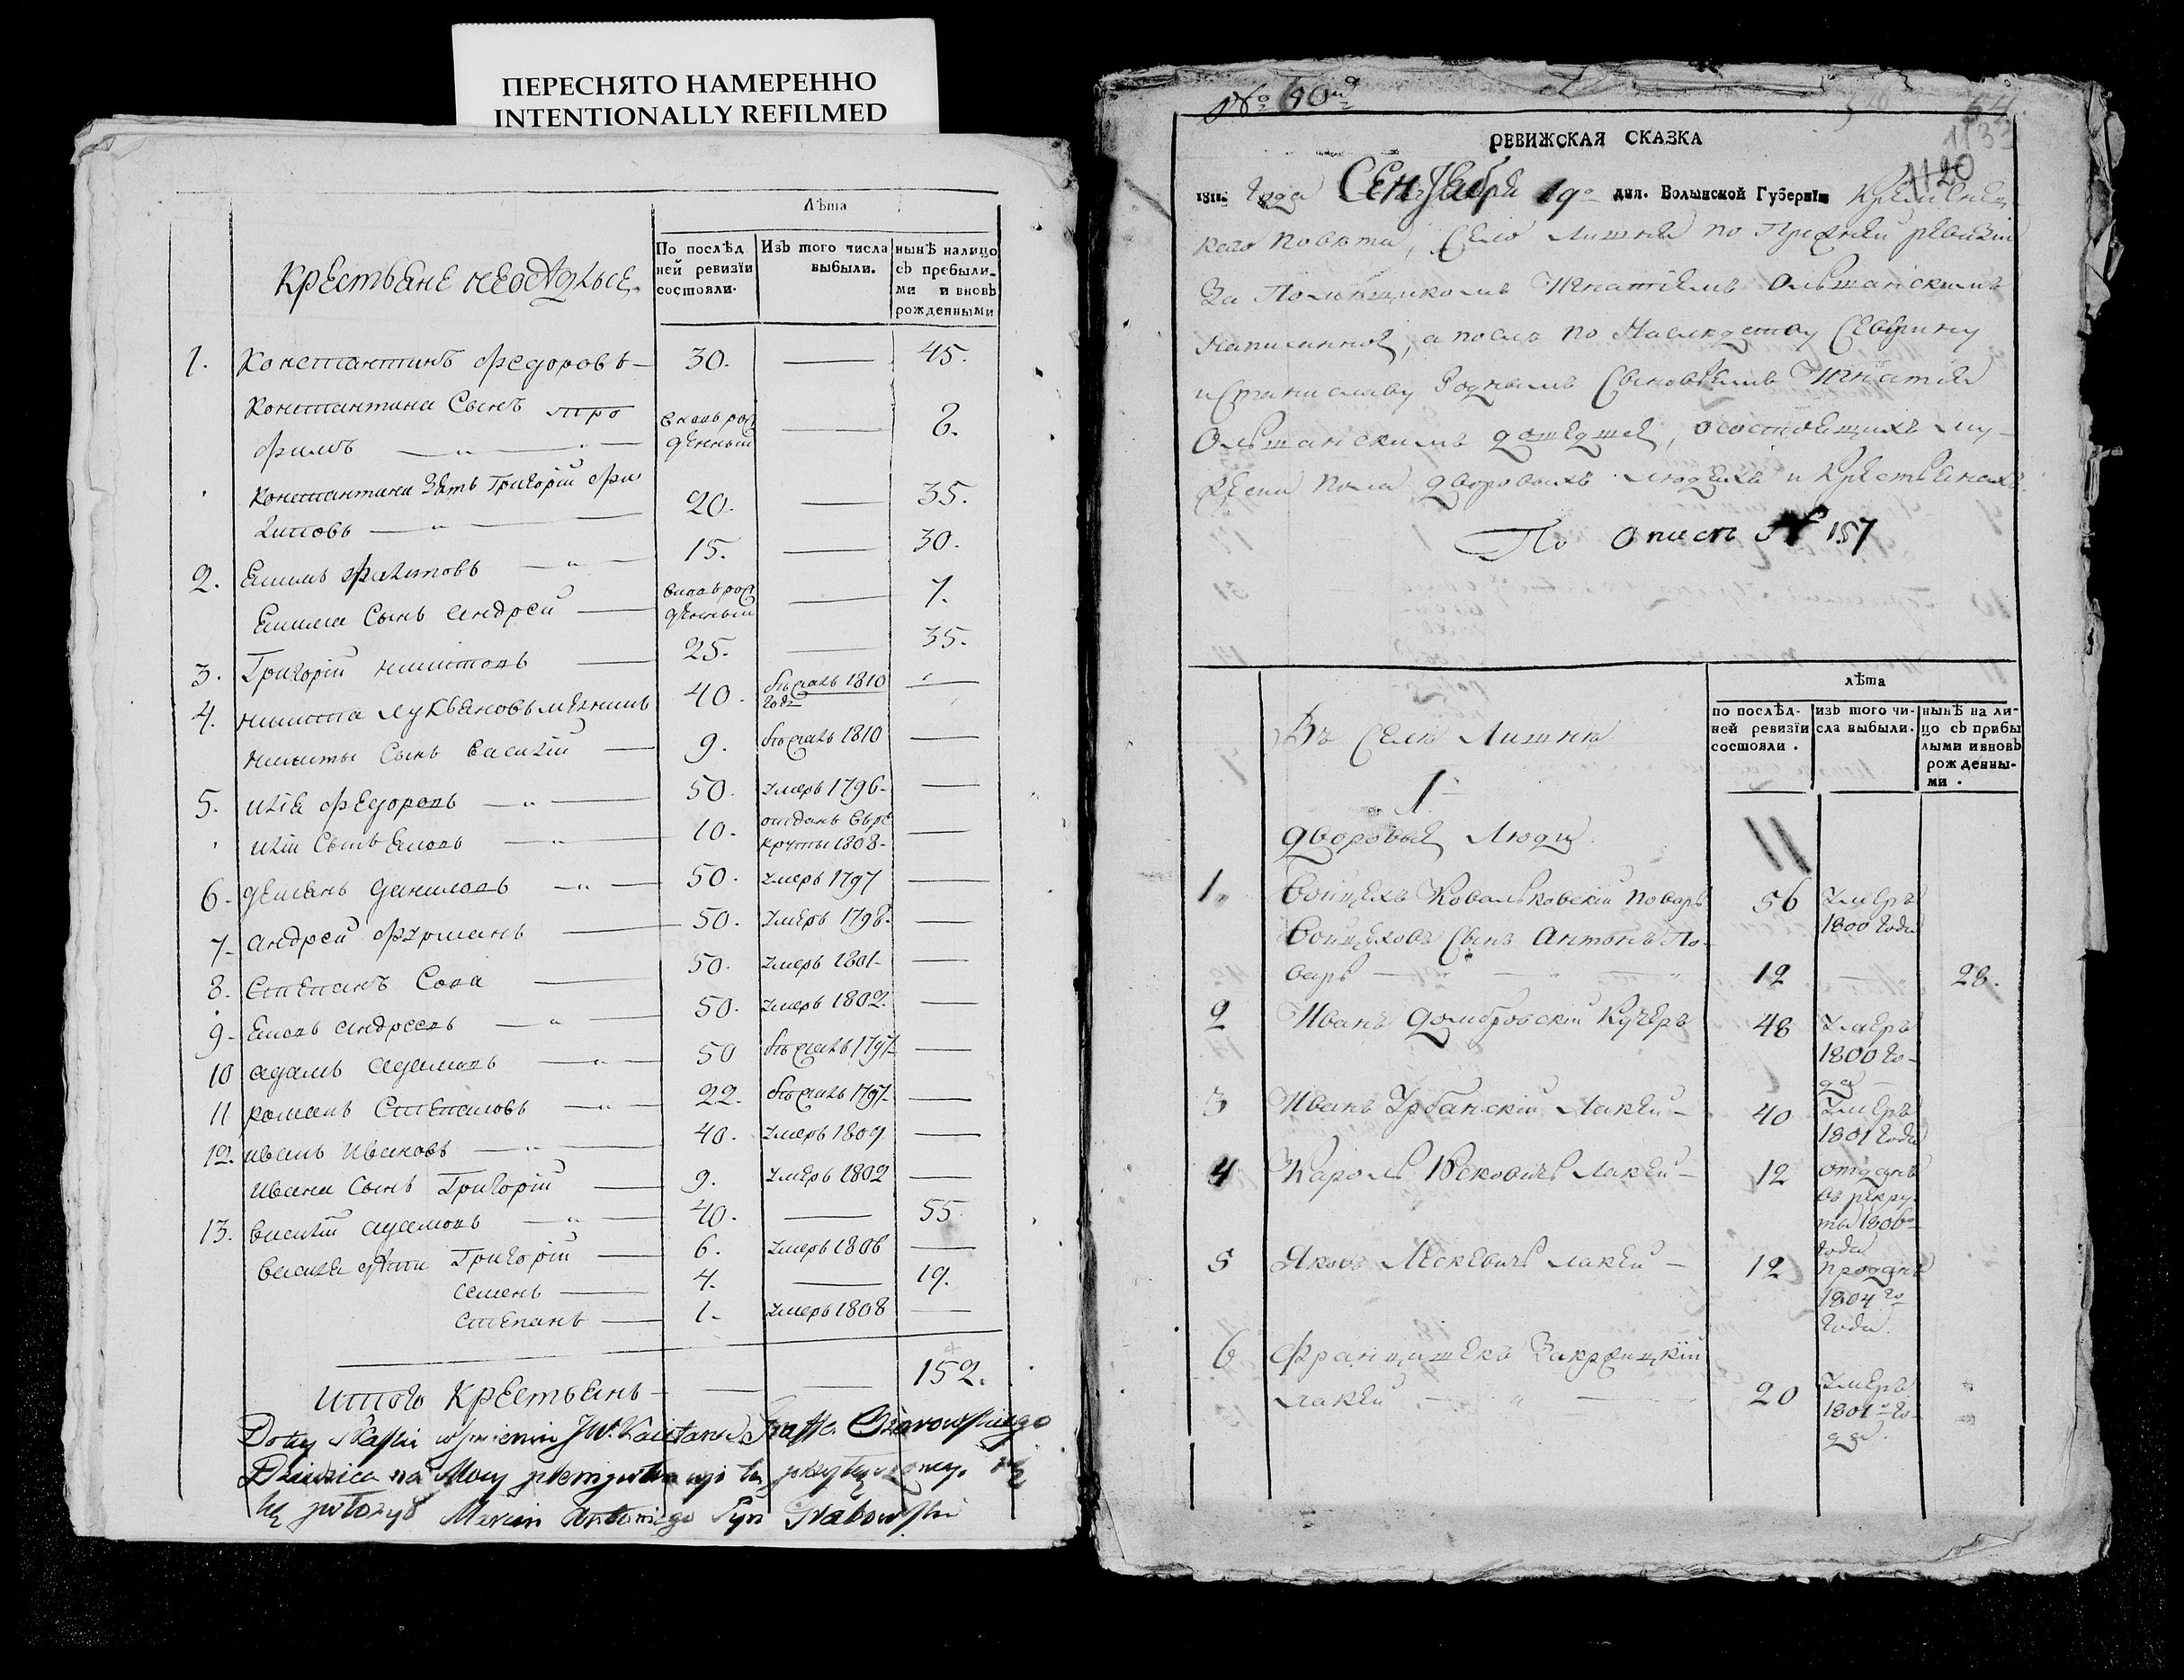 ПЕРЕСНЯТО НАМЕРЕННО
INTENTIONALLY REFILMED
Лѣта
Крестьяне неосѣдлые
По послѣд
ней ревизїи
состояли.
Изъ того числа
выбыли.
нынѣ налицо
съ пребыли-
ми и вновь
рожденными
1. Константинъ Федоровъ — 30. — 45.
Константина Сынъ Тро
фимъ — вновь рож
денный — 8.
Константина Зять Григорій Фи
липовъ — 20. — 35.
2. Екимъ Филиповъ — 15. — 30.
Екима Сынъ Андрей — вновь рож
денный — 7.
3. Григорій Никитовъ — 25. — 35.
4. Никита Лукьяновъ 40. бѣжалъ 1810
года —
Никиты Сынъ Василій — 9. бѣжалъ 1810 —
5. Илія Федоровъ — 50. умеръ 1796 —
Иліи Сынъ — 10. отданъ въ ре
круты 1808 —
6. Демянъ Даниловъ — 50. умеръ 1797 —
7. Андрей Фурманъ — 50. умеръ 1798 —
8. Степанъ Сова — 50. умеръ 1801 —
9. Андреевъ — 50. умеръ 1802 —
10 Адамъ Адамовъ — 50 бѣжалъ 1797 —
11 Романъ — 22. бѣжалъ 1797 —
12. Иванъ Ивановъ — 40. умеръ 1809 —
Ивана Сынъ Григорій — 9. умеръ 1802 —
13. Василій Адамовъ — 40. — 55
Василія дѣти Григорій — 6. умеръ 1806 —
Семенъ — 4. — 19.
Степанъ — 1. умеръ 1808 —
Итого Крестьянъ — 152.
Do tey Skaski w Imieniu JW. Kaietana Graffa Ożarowskiego
Dziedzica na Mocy
Marcin Antoniego Syn Grabowski
№ 60й
54
1133
1120
РЕВИЖСКАЯ СКАЗКА
1811. Года Сентября 19го дня. Волынской Губернїи Кременец
кого повѣта, Село Лишня по Прежней ревизіи
За Помѣщикомъ Игнатіемъ Ольшанскимъ
написанной, а послѣ по Наслѣдству Северину
и Станиславу Роднымъ Сыновьямъ Игнатія
Ольшанскимъ дошедшей, о состоящихъ му-
жеска пола дворовыхъ людяхъ и Крестьянахъ
По описи № 157
лѣта
Въ Селѣ Лишнѣ
по послѣд-
ней ревизїи
состояли.
изъ того чи-
сла выбыли.
нынѣ на ли-
цо съ прибы
лыми и вновь
рожденны-
ми.
1
дворовые Люди
11
1. Войцехъ Ковальковскій поваръ 56 умеръ
1800 года
Войцехова Сынъ Антонъ По-
варъ — 12 — 28.
2 Иванъ Домбровскій Кучеръ 48 умеръ
1800 го-
да
3 Иванъ Урбанскій Лакей — 40 умеръ
1801 года
4 Кароль Лакей — 12 отданъ
въ рекру
ты 1806
года
5 Яковъ Лескевичъ лакей — 12 проданъ
1804 го
года.
6 Францишекъ Закржицкій
лакей — 20 умеръ
1801 го-
да.